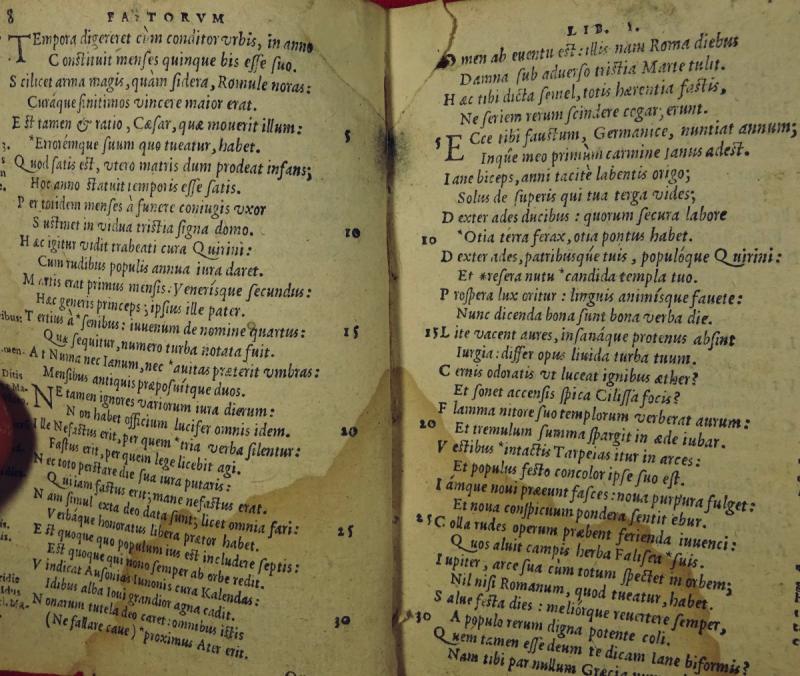 8 FASTORVM
TEmpora digereret cùm conditor vrbis, in anno
Constituit menses quinque bis esse suo.
Scilicet arma magis, quàm sidera, Romule noras:
Curáque finitimos vincere maior erat.
Est tamen & ratio, Cæsar, quæ mouerit illum: 5
*Errorémque suum quo tueatur, habet.
Quod satis est, vtero matris dum prodeat infans;
Hoc anno statuit temporis esse satis.
Per totidem menses à funere coniugis vxor
Sustinet in vidua tristia signa domo. 10
Hæc igitur vidit trabeati cura Quirini:
Cum rudibus populis annua iura daret.
Martis erat primus mensis: Venerisque secundus:
Hæc generis princeps; ipsius ille pater.
Tertius à *senibus: iuuenum de nomine quartus: 15
Quæ sequitur, numero turba notata fuit.
At Numa nec Ianum, nec *auitas præterit vmbras:
Mensibus antiquis præposuitque duos.
NE tamen ignores variorum iura dierum:
Non habet officium lucifer omnis idem. 20
Ille Nefastus erit, per quem *tria verba silentur:
Fastus erit, per quem lege licebit agi.
Nec toto perstare die sua iura putaris:
Qui iam fastus erit; mane nefastus erat.
Nam simul exta deo data sunt; licet omnia fari: 25
Verbáque honoratus libera prætor habet.
Est quoque quo populum ius est includere septis:
Est quoque qui nono semper ab orbe redit.
Vindicat Ausonias Iunonis cura Kalendas:
Idibus alba Ioui grandior agna cadit. 30
Nonarum tutela deo caret: omnibus istis
(Ne fallare caue) *proximus Ater erit.
LIB. I.
Omen ab euentu est: illis nam Roma diebus
Damna sub aduerso tristia Marte tulit.
Hæc tibi dicta semel, totis hærentia fastis,
Ne seriem rerum scindere cogar, erunt.
5 ECce tibi faustum, Germanice, nuntiat annum;
Inque meo primùm carmine Ianus adest.
Iane biceps, anni tacitè labentis origo;
Solus de superis qui tua terga vides;
Dexter ades ducibus: quorum secura labore
10 *Otia terra ferax, otia pontus habet.
Dexter ades, patribusque tuis, populóque Quirini:
Et *resera nutu *candida templa tuo.
Prospera lux oritur: linguis animísque fauete:
Nunc dicenda bona sunt bona verba die.
15 Lite vacent aures, insanáque protenus absint
Iurgia: differ opus liuida turba tuum.
Cernis odoratis vt luceat ignibus æther?
Et sonet accensis spica Cilissa focis?
Flamma nitore suo templorum verberat aurum:
20 Et tremulum summa spargit in æde iubar.
Vestibus *intactis Tarpeias itur in arces:
Et populus festo concolor ipse suo est.
Iamque noui præeunt fasces: noua purpura fulget:
Et noua conspicuum pondera sentit ebur.
25 Colla rudes operum præbent ferienda iuuenci:
Quos aluit campis herba Falisca *suis.
Iupiter, arce sua cum totum spectet in orbem;
Nil nisi Romanum, quod tueatur, habet.
Salue festa dies: meliórque reuertere semper,
30 A populo rerum digna potente coli.
Quem tamen esse deum te dicam Iane biformis?
Nam tibi par nullum Græcia numen